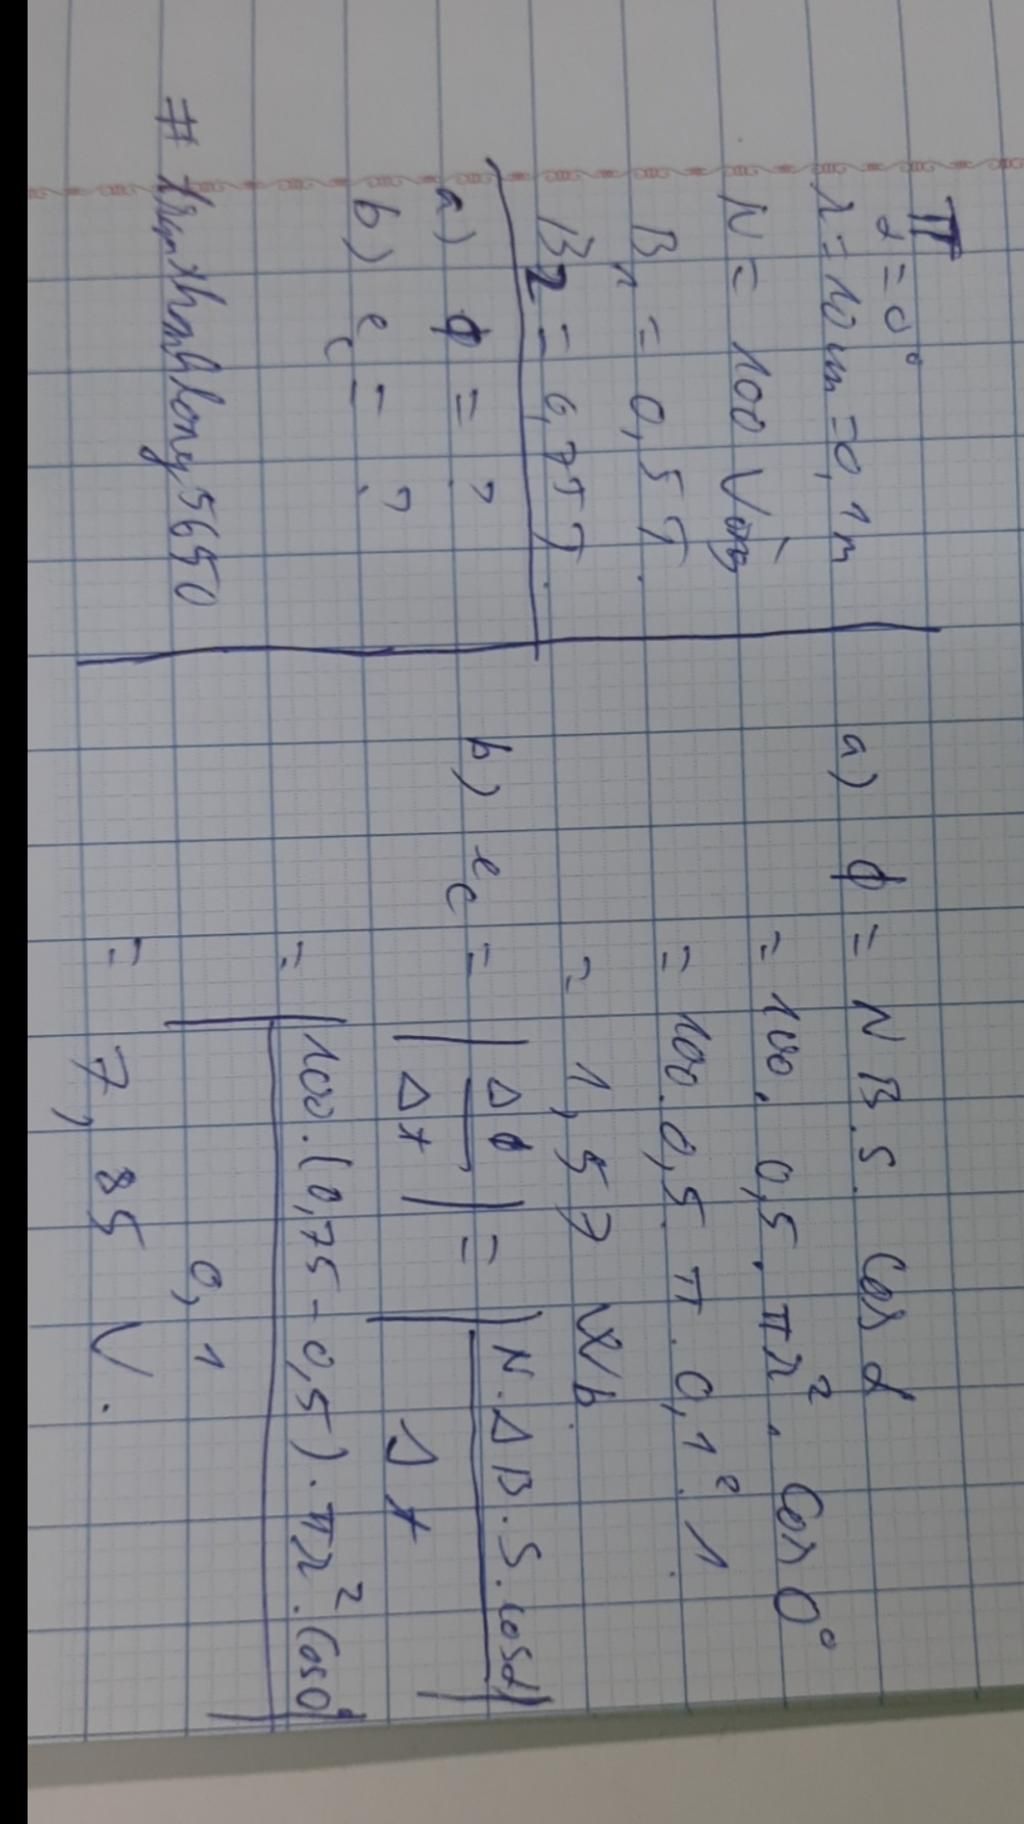 TT
α = 0°
r = 10 cm = 0,1 m
N = 100 Vòng
B1 = 0,5 T.
B2 = 0,75 T.
a) ϕ = ?
b) ec = ?
a) ϕ = N B. S. Cos α
= 100. 0,5. πr². Cos 0°
= 100. 0,5. π. 0,1². 1
= 1,57 Wb.
b) ec = |Δϕ/Δt| = |N. ΔB. S. cosα / Δt|
= |100. (0,75 - 0,5). πr². Cos0° / 0,1|
= 7,85 V.